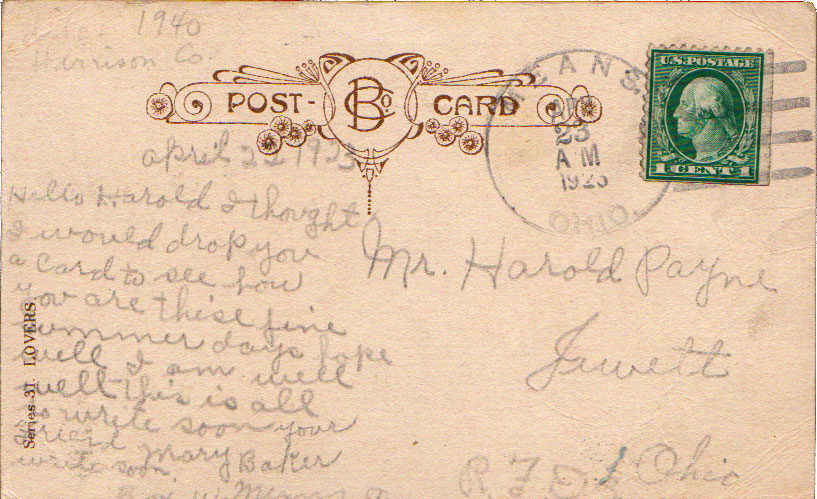 1940
Harrison Co.
POST-CARD
BCo.
EANS,
23
AM
1923
OHIO.
U.S. POSTAGE
1 CENT 1
april 22 1923
Hello Harold I thought
I would drop you
a card to see how
you are these fine
summer days hope
well I am well
well this is all
so write soon your
friend Mary Baker
write soon
Box
Mr. Harold Payne
Jewett
R.F.D. 1 Ohio
Series 31. LOVERS.